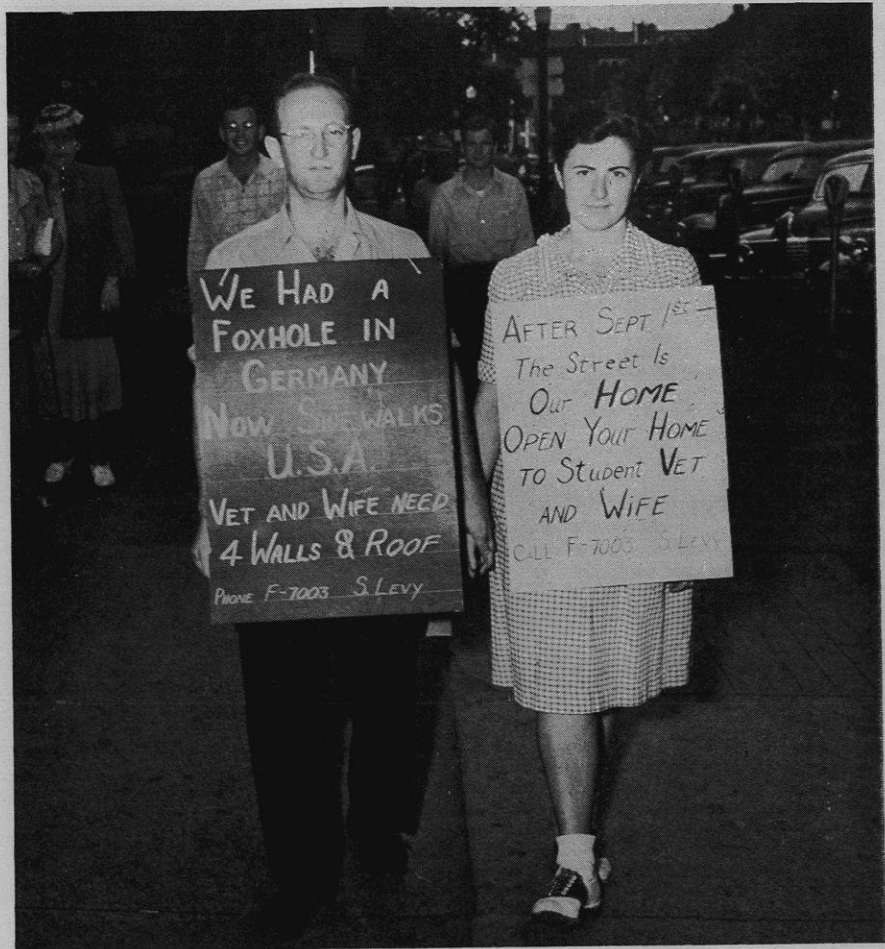 WE HAD A
FOXHOLE IN
GERMANY
NOW SIDEWALKS
U.S.A.
VET AND WIFE NEED
4 WALLS & ROOF
PHONE F-7003 S. LEVY
AFTER SEPT 1ST
The Street Is
Our HOME
OPEN YOUR HOME
TO STUDENT VET
AND WIFE
CALL F-7003 S. LEVY